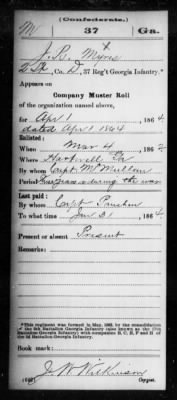 (Confederate.)
M 37 Ga.
J. R. Myres
2 Lt, Co. D, 37 Reg't Georgia Infantry.*
Appears on
Company Muster Roll
of the organization named above,
for Apr 1 , 1864
dated Apr 1 1864
Enlisted:
When Mar 4 , 1862
Where Hartwell Ga
By whom Capt McMullan
Period 3 years or during the war
Last paid:
By whom Capt
To what time Jan 31 , 1864
Present or absent Present
Remarks:
*This regiment was formed in May, 1863, by the consolidation
of the 3d Battalion Georgia Infantry (also known as the
Georgia Infantry) with companies
of 9th Battalion Georgia Infantry.
Book mark:
J. W. Wilkinson
(642) Copyist.